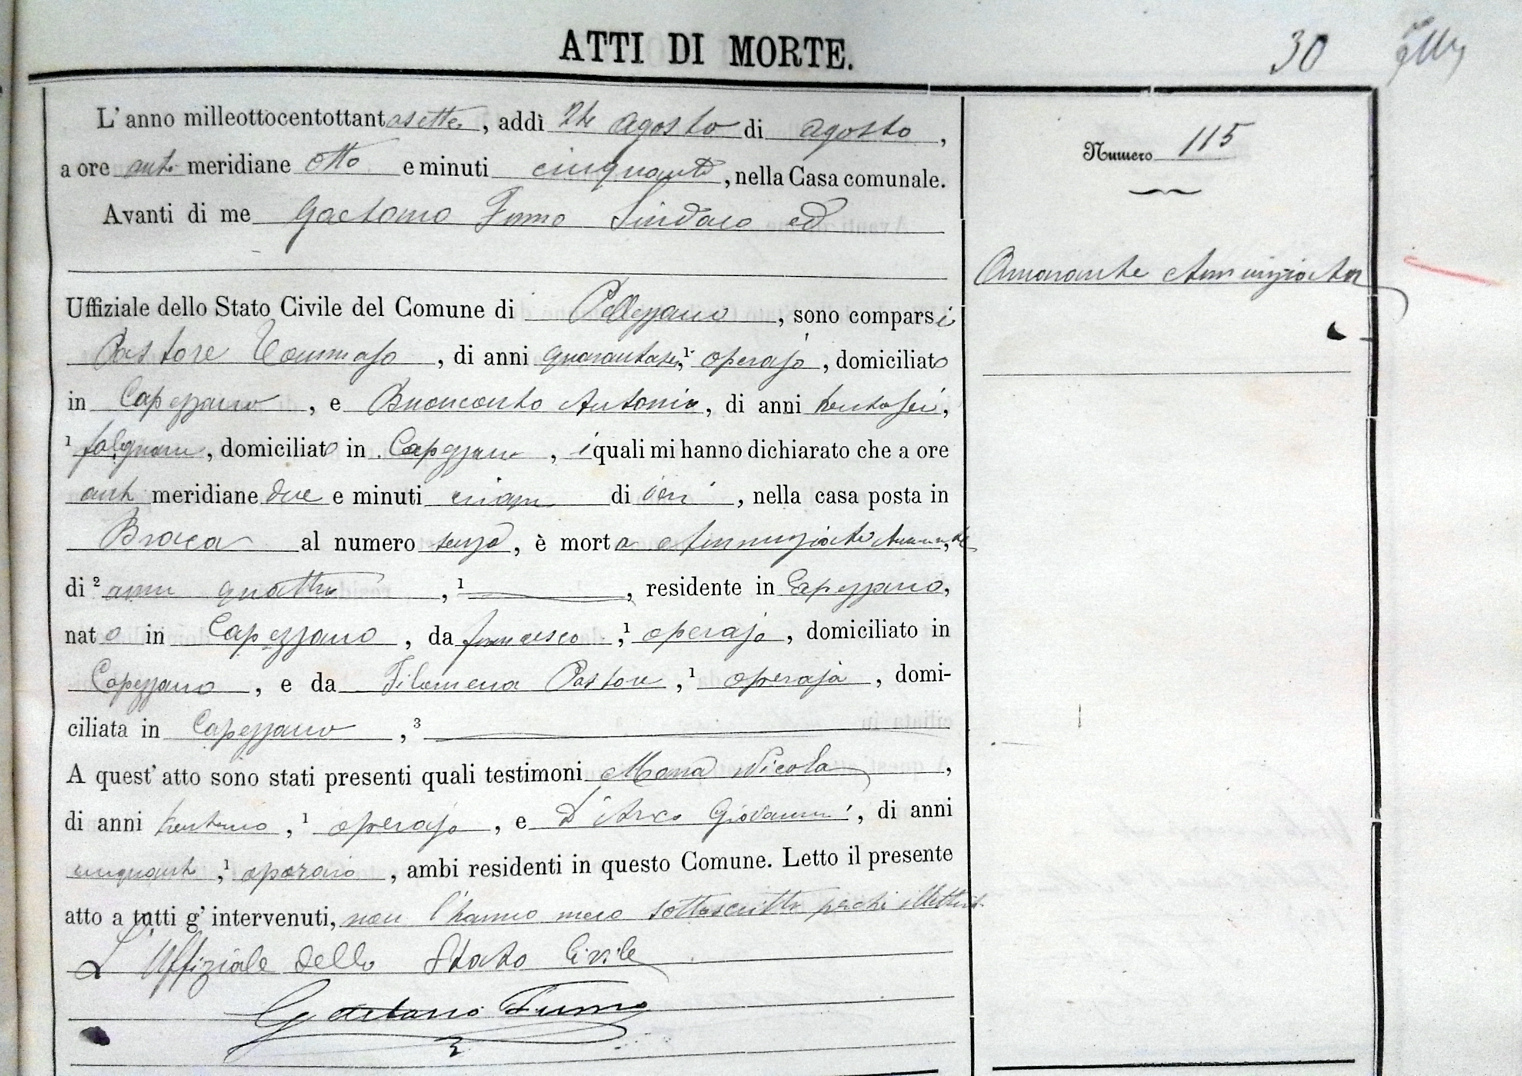 ATTI DI MORTE.
30
Numero 115
Amarante Annunziata
L' anno milleottocentottantasette, addì di agosto,
a ore anti meridiane otto e minuti cinquanta, nella Casa comunale.
Avanti di me Gaetano Fumo Sindaco ed
Uffiziale dello Stato Civile del Comune di Pellezzano, sono comparsi
Pastore Tommaso, di anni quarantasei, 1 operajo, domiciliato
in Capezzano, e Buonconto Antonio, di anni trentasei,
1 falegname, domiciliato in Capezzano, i quali mi hanno dichiarato che a ore
anti meridiane due e minuti di ieri, nella casa posta in
al numero, è morta Annunziata Amarante
di 2 anni quattro, 1, residente in Capezzano,
nata in Capezzano, da Francesco, 1 operajo, domiciliato in
Capezzano, e da Filomena Pastore, 1 operaja, domi-
ciliata in Capezzano, 3
A quest' atto sono stati presenti quali testimoni Nicola,
di anni, 1 operajo, e D'Arco Giovanni, di anni
cinquanta, 1 operaio, ambi residenti in questo Comune. Letto il presente
atto a tutti g' intervenuti, non l'hanno meco sottoscritto perchè illetterati
L'Uffiziale dello Stato Civile
Gaetano Fumo